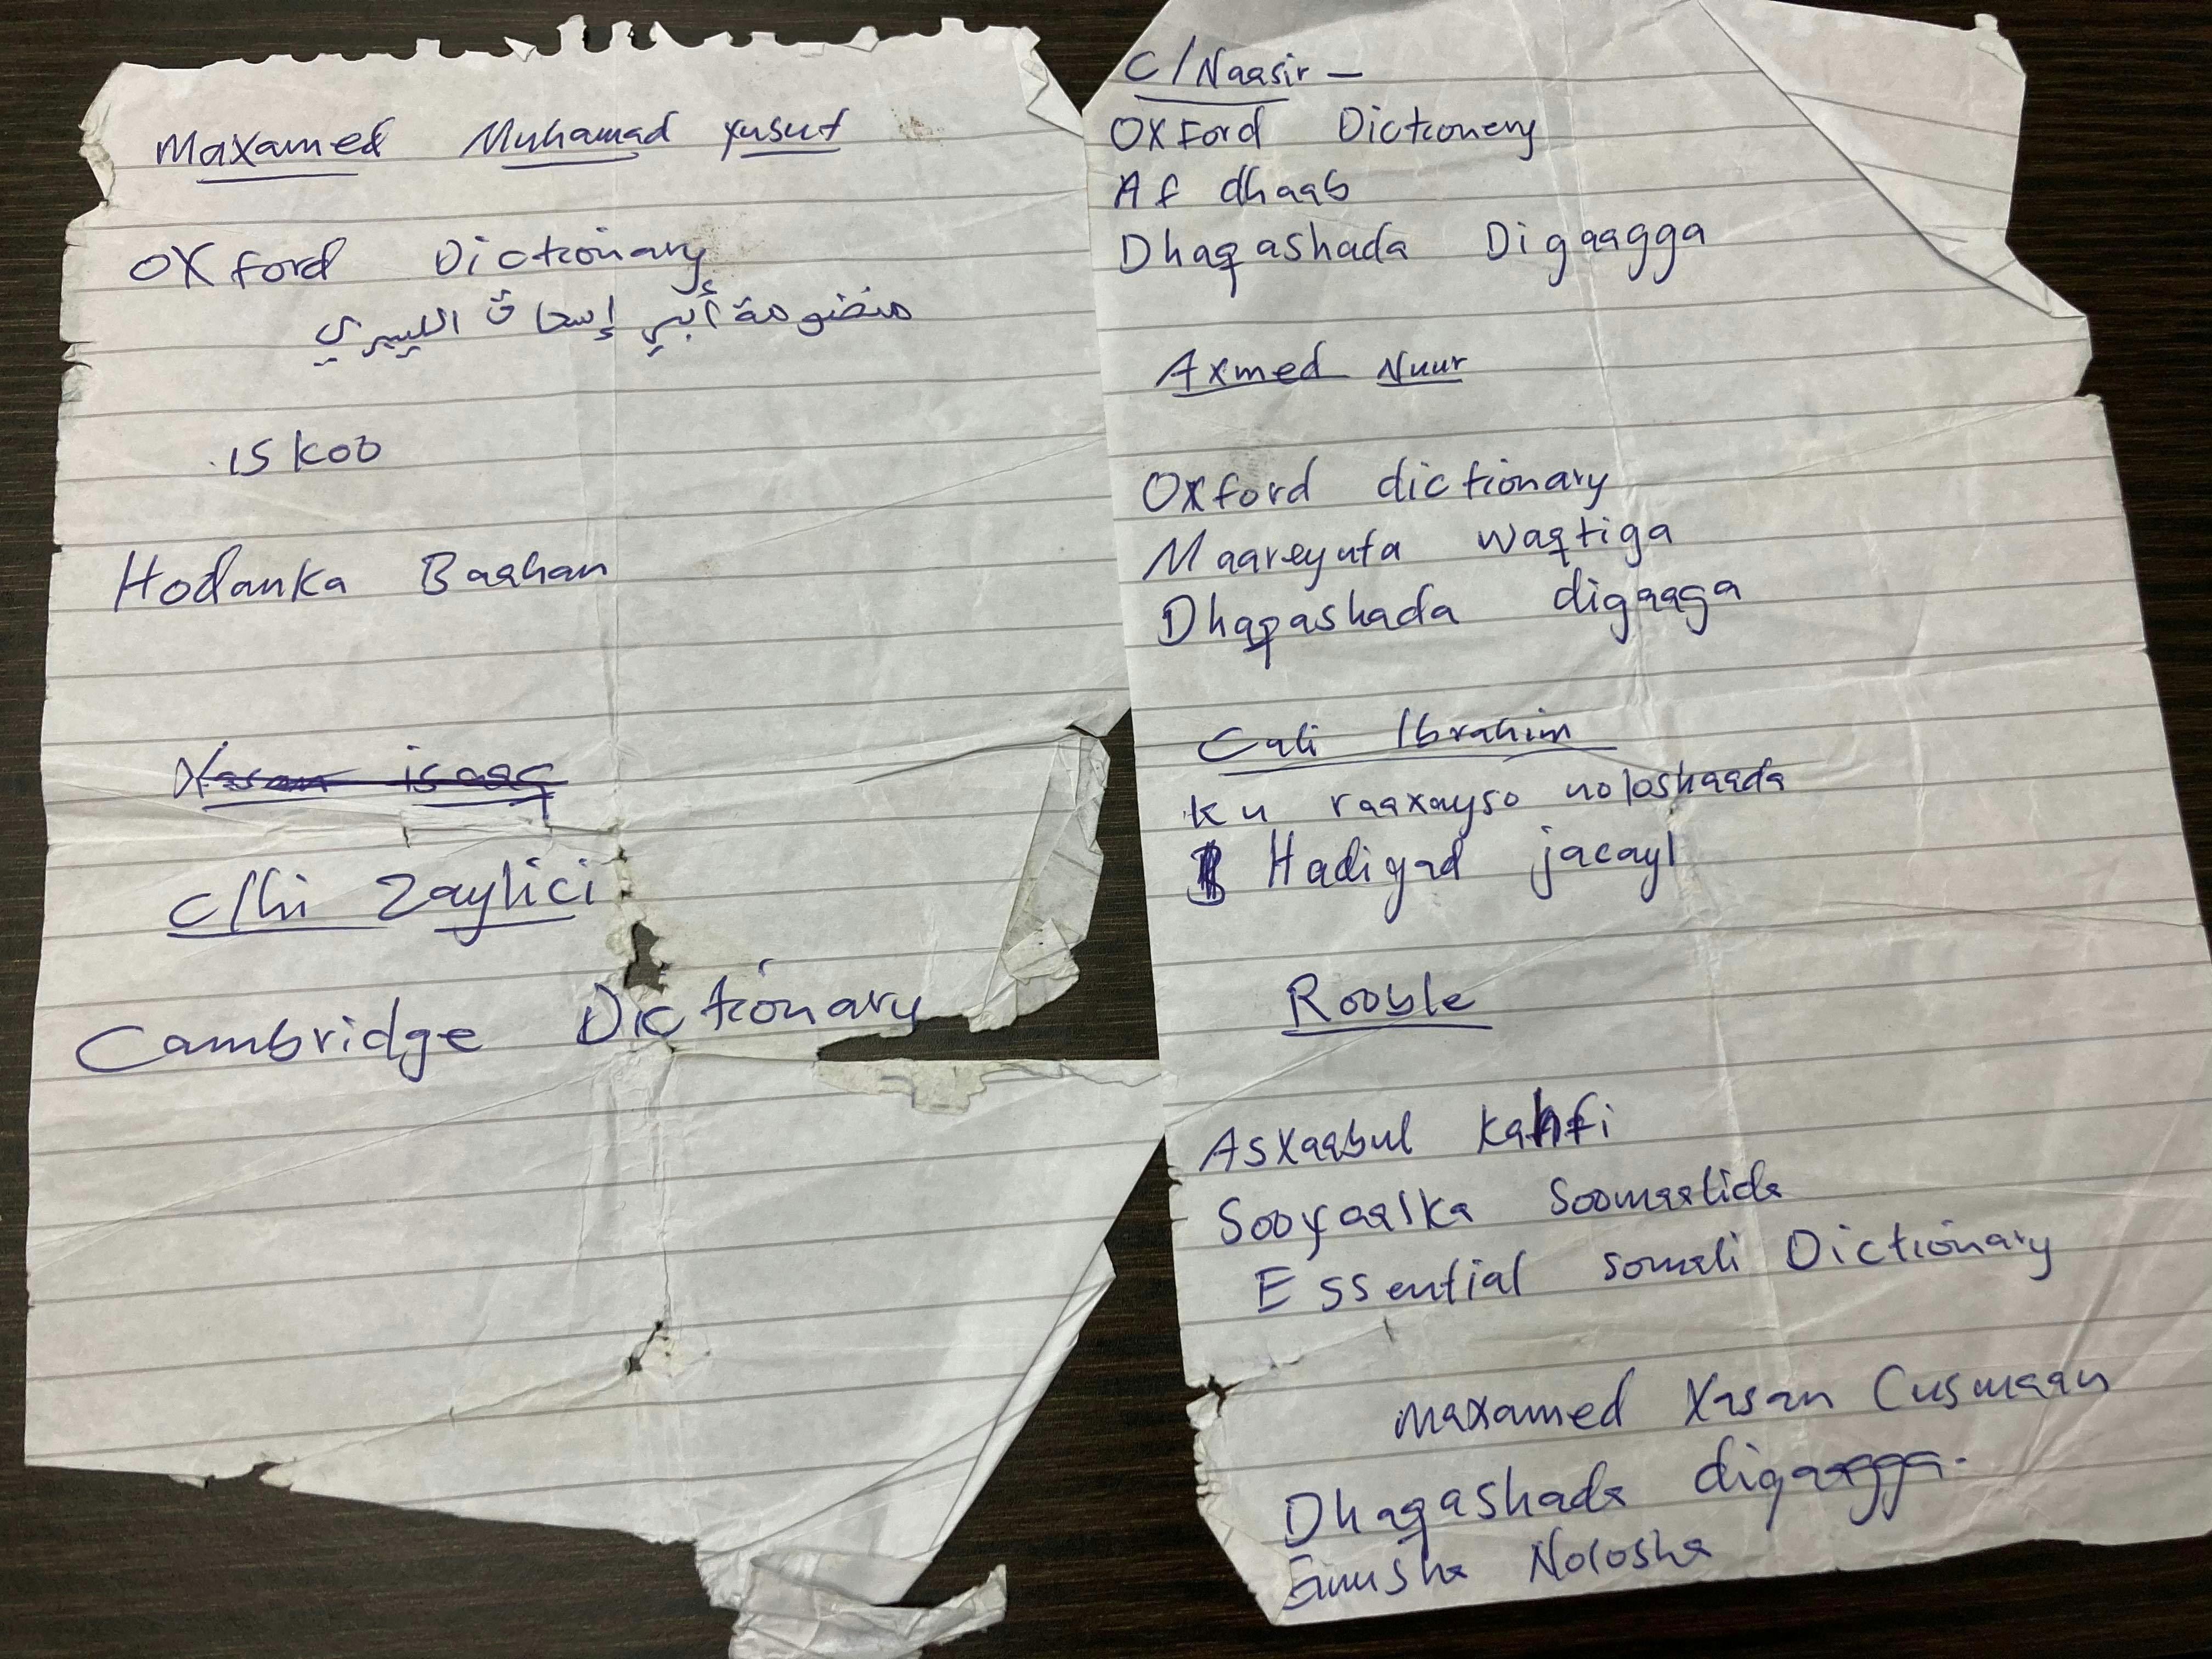 Maxamed Muhamad Yusuf
OXford Dictionary
منضومة أبي إسحاق الليبيري
iskoo
Hodanka Baahan
Xasan isaaq
C/hi Zaylici
Cambridge Dictionary
C/Naasir -
OXFord Dictionery
Af dhaab
Dhaqashada Digaagga
Axmed Nuur
Oxford dictionary
Maareynta waqtiga
Dhaqashada digaaga
Cali Ibrahim
Ku raaxayso noloshaada
Hadiyad jacayl
Rooble
Asxaabul Kahfi
Sooyaalka Soomaalida
Essential somali Dictionary
Maxamed Xasan Cusmaan
Dhaqashada digaagga.
Furusha Nolosha